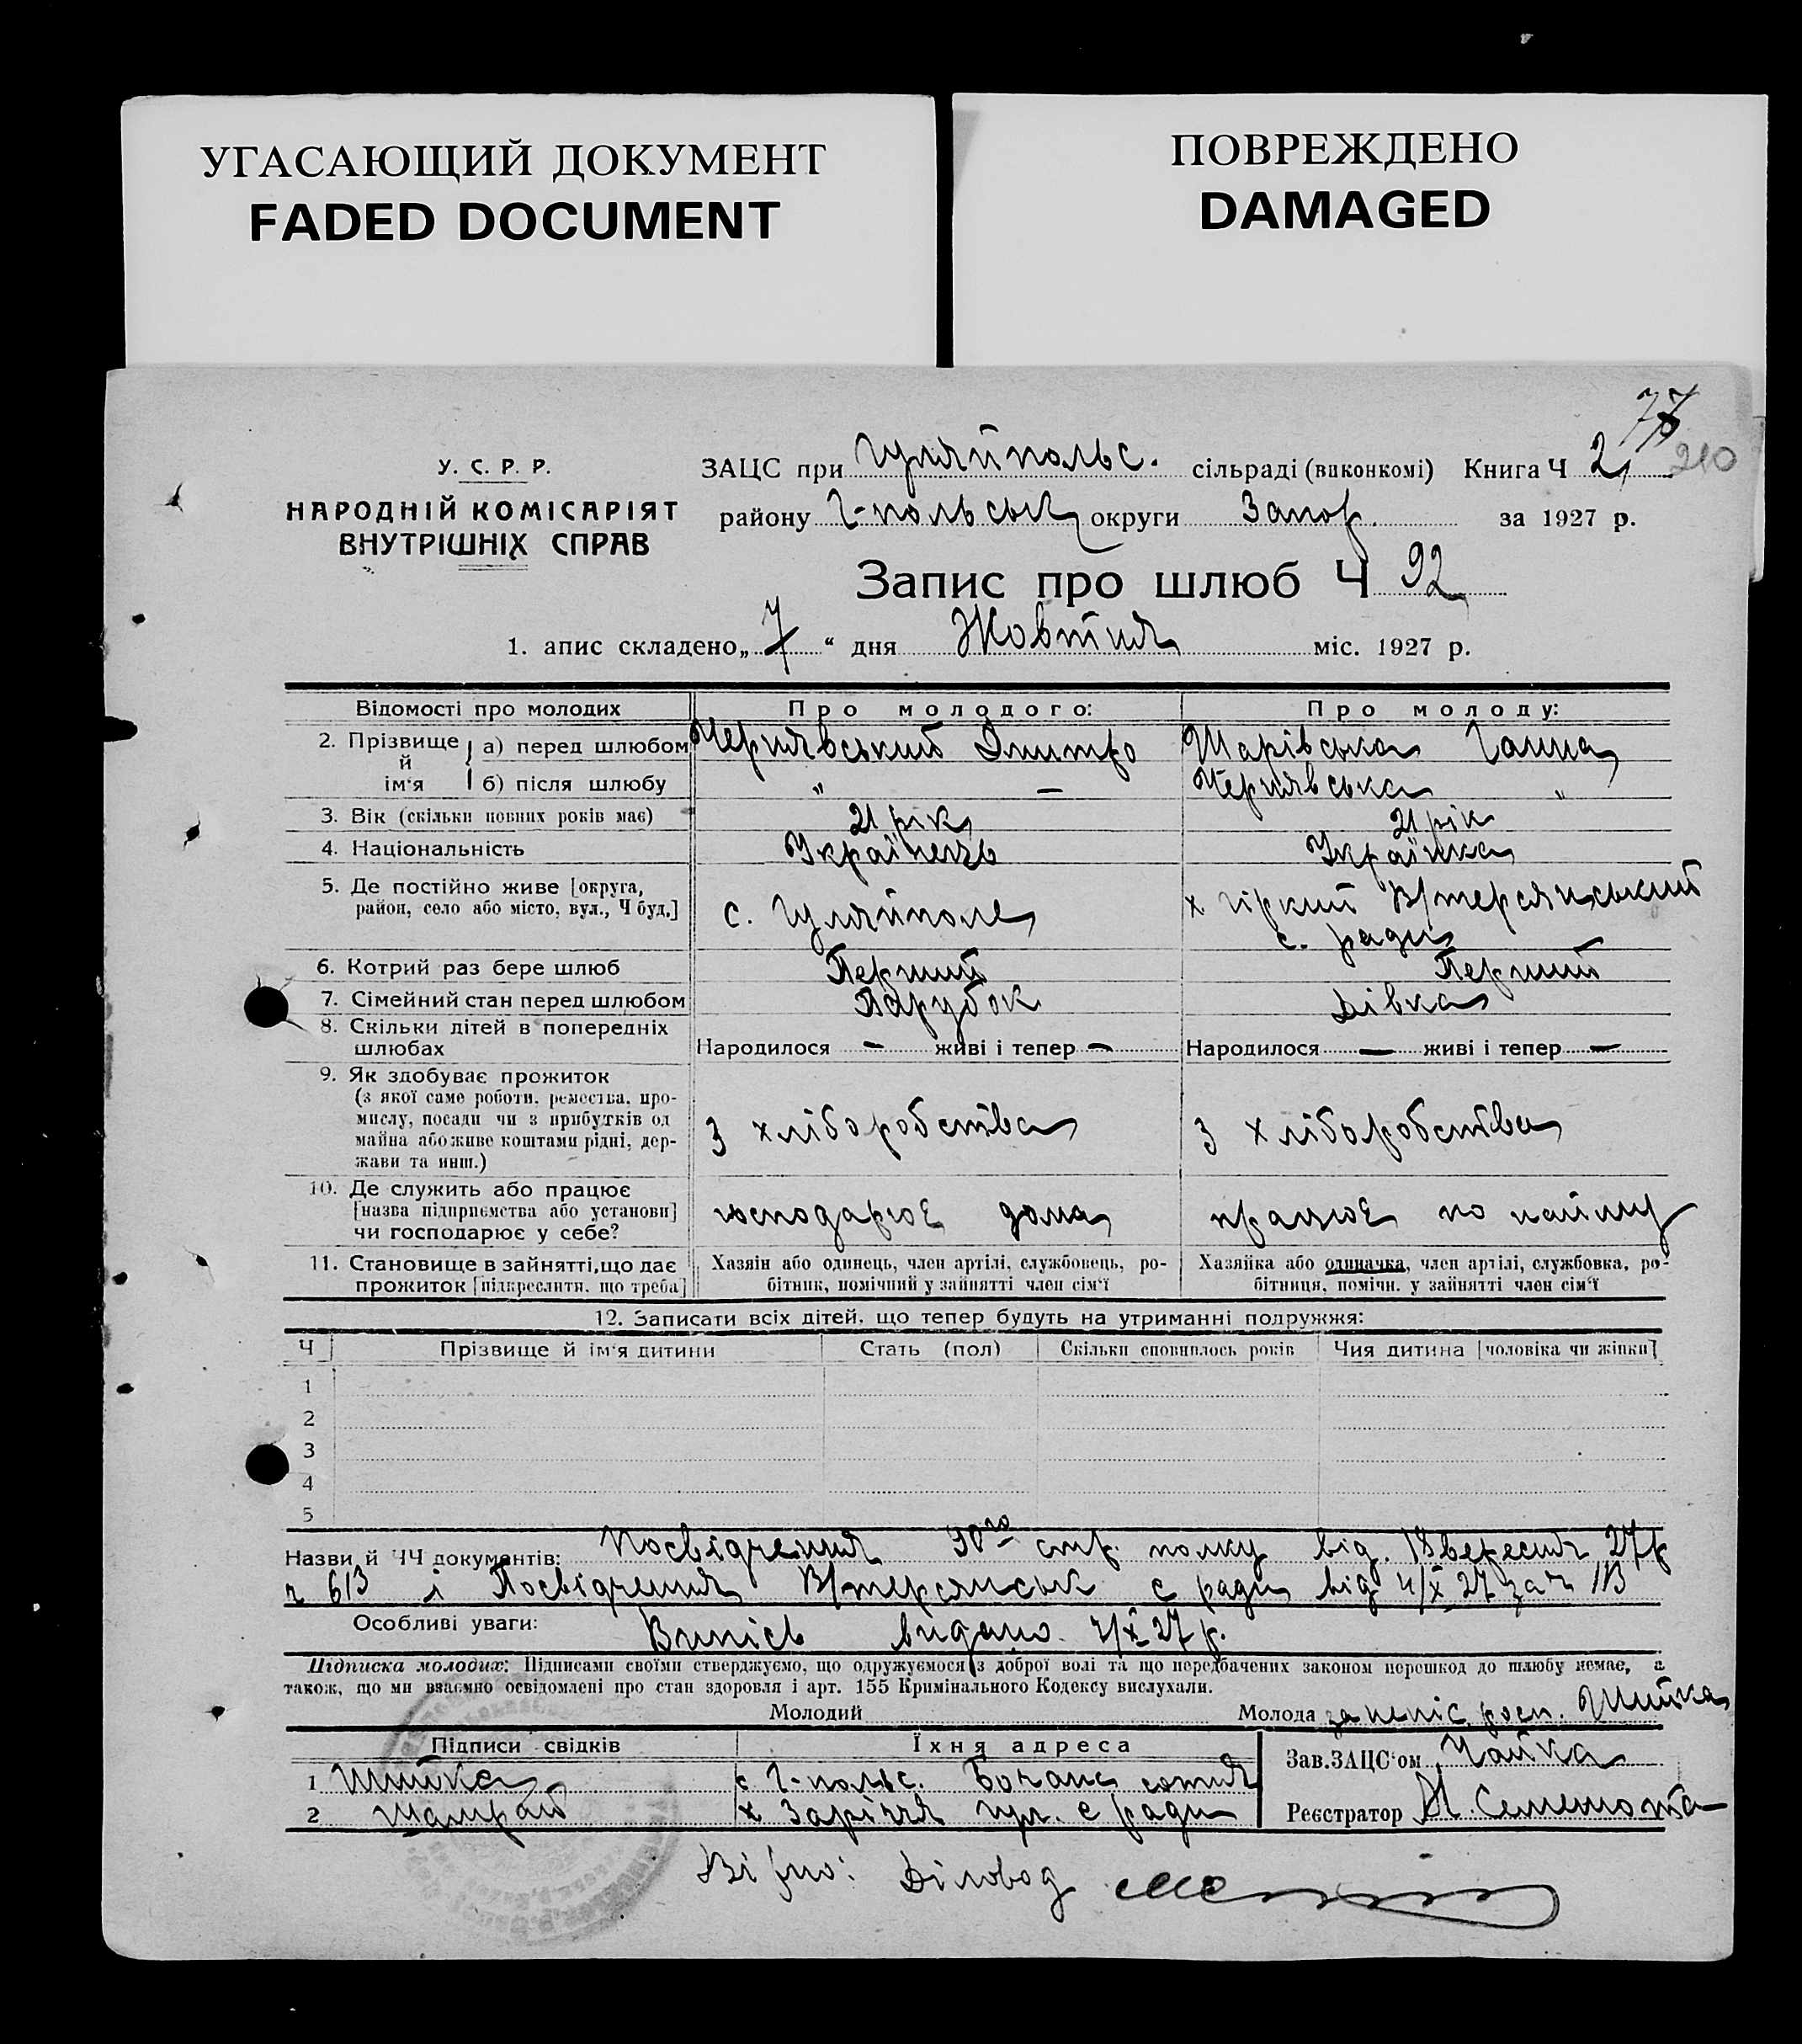 УГАСАЮЩИЙ ДОКУМЕНТ
FADED DOCUMENT
ПОВРЕЖДЕНО
DAMAGED
77
210
У. С. Р. Р.
НАРОДНІЙ КОМІСАРІЯТ
ВНУТРІШНІХ СПРАВ
ЗАЦС при Гуляйпольс. сільраді (виконкомі) Книга Ч 2
району Г-польськ округи Запор. за 1927 р.
Запис про шлюб Ч 92
1. апис складено „ 7 “ дня Жовтня міс. 1927 р.
Відомості про молодих Про молодого: Про молоду:
2. Прізвище й ім'я а) перед шлюбом Чернявський Дмитро Шарівська Ганна
б) після шлюбу „ — Чернявська „
3. Вік (скільки повних років має) 21 рік 21 рік
4. Національність Українець Українка
5. Де постійно живе [округа, район, село або місто, вул., Ч буд.] с. Гуляйполе х. Гіркий В/терсянський с. ради
6. Котрий раз бере шлюб Перший Перший
7. Сімейний стан перед шлюбом Парубок Дівка
8. Скільки дітей в попередніх шлюбах Народилося — живі і тепер — Народилося — живі і тепер —
9. Як здобуває прожиток
(з якої саме роботи, ремества, про-
мислу, посади чи з прибутків од
майна або живе коштами рідні, дер-
жави та инш.) з хліборобства з хліборобства
10. Де служить або працює
[назва підприємства або установи]
чи господарює у себе? господарює дома працює по найму
11. Становище в зайнятті, що дає
прожиток [підкреслити, що треба]
Хазяїн або одинець, член артілі, службовець, ро-
бітник, помічний у зайнятті член сім'ї
Хазяйка або одиначка, член артілі, службовка, ро-
бітниця, помічн. у зайнятті член сім'ї
12. Записати всіх дітей, що тепер будуть на утриманні подружжя:
Ч Прізвище й ім'я дитини Стать (пол) Скільки сповнилось років Чия дитина [чоловіка чи жінки]
1
2
3
4
5
Назви й ЧЧ документів: Посвідчення 90го стр. полку від. 18 вересня 27 р
ч 613 і Посвідчення В/терсянськ с ради від 4/X 27 за ч 113
Особливі уваги: Випись видано. 7/X 27 р.
Підписка молодих: Підписами своїми стверджуємо, що одружуємося з доброї волі та що передбачених законом перешкод до шлюбу немає, а
також, що ми взаємно освідомлені про стан здоровля і арт. 155 Кримінального Кодексу вислухали.
Молодий Молода за непіс. росп. Шийка
Підписи свідків Їхня адреса
1 Шийка с Г-польс. сотня
2 Шамрай х Заріччя гул. с ради
Зав. ЗАЦС'ом Чайка
Реєстратор
Вірно: Діловод